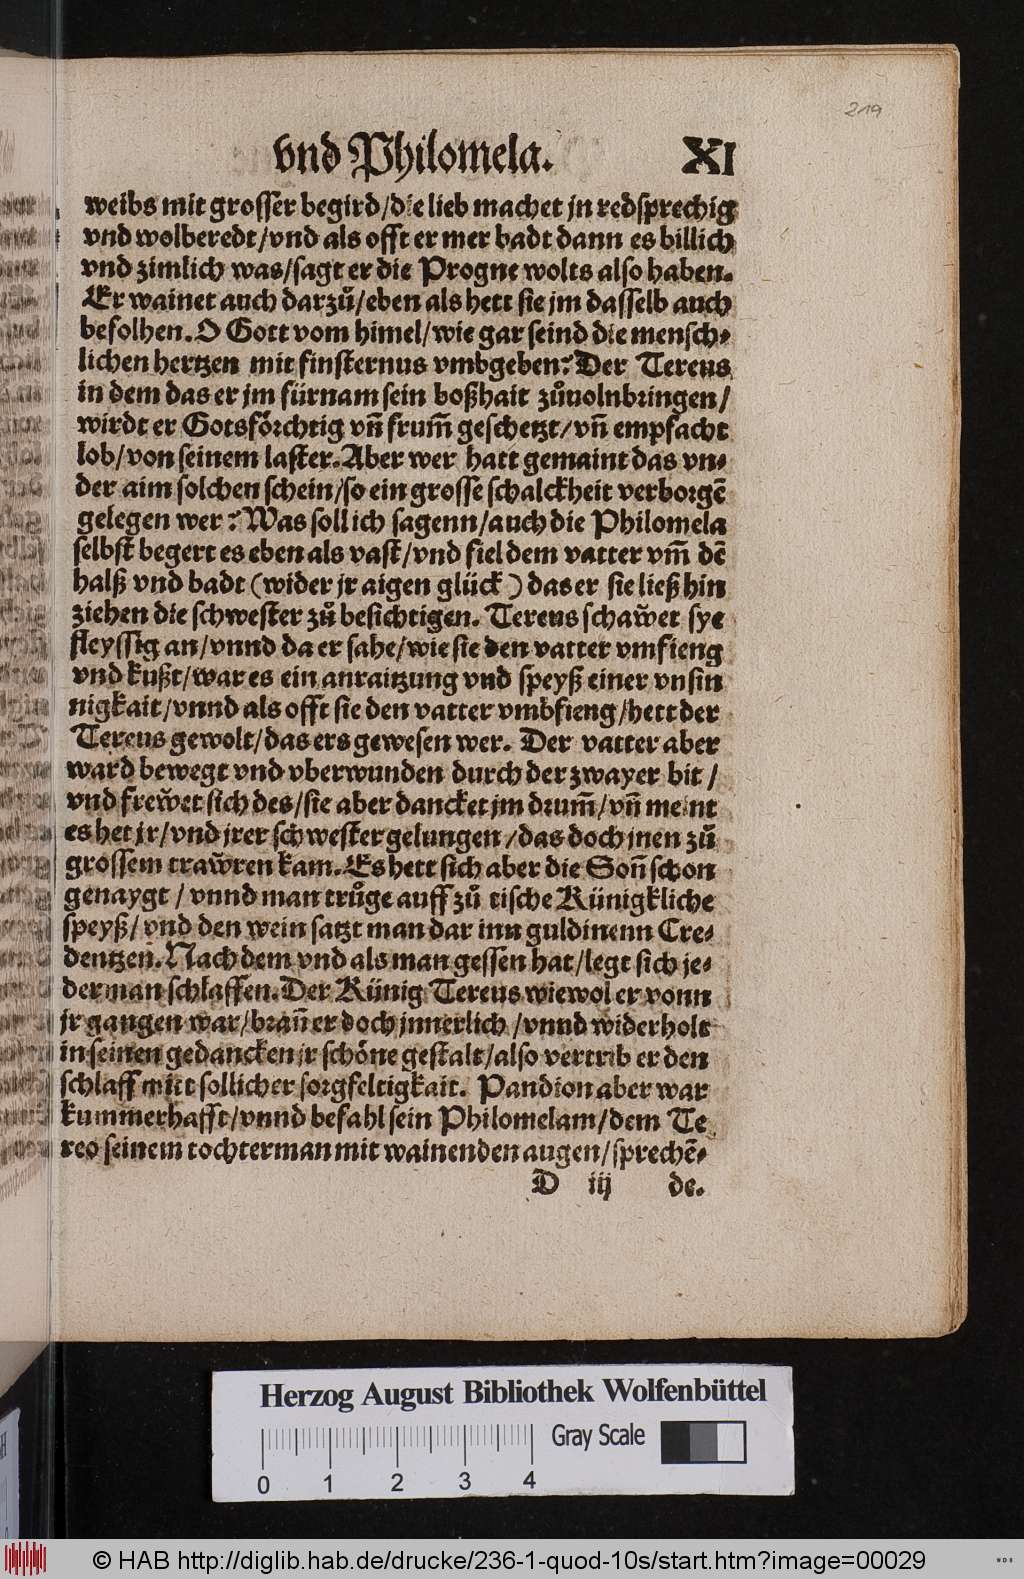 219
vnd Philomela. XI
weibs mit grosser begird/die lieb machet jn redsprechig
vnd wolberedt/vnd als offt er mer badt dann es billich
vnd zimlich was/sagt er die Progne wolts also haben.
Er wainet auch darzuͦ/eben als hett sie jm dasselb auch
befolhen. O Gott vom himel/wie gar seind die mensch⸗
lichen hertzen mit finsternus vmbgeben? Der Tereus
in dem das er jm fürnam sein boßhait zuͦuolnbringen/
wirdt er Gotsfoͤrchtig vñ frum̃ geschetzt/vñ empfacht
lob/von seinem laster. Aber wer hatt gemaint das vn⸗
der aim solchen schein/so ein grosse schalckheit verborgẽ
gelegen wer? Was soll ich sagenn/auch die Philomela
selbst begert es eben als vast/vnd fiel dem vatter vm̃ dẽ
halß vnd badt (wider jr aigen glück) das er sie ließ hin
ziehen die schwester zuͦ besichtigen. Tereus schaw̃et sye
fleyssig an/vnnd da er sahe/wie sie den vatter vmfieng
vnd kußt/war es ein anraitzung vnd speyß einer vnsin
nigkait/vnnd als offt sie den vatter vmbfieng/hett der
Tereus gewolt/das ers gewesen wer. Der vatter aber
ward bewegt vnd vberwunden durch der zwayer bit/
vnd frew̃et sich des/sie aber dancket jm drum̃/vñ meint
es het jr/vnd jrer schwester gelungen/das doch jnen zuͦ
grossem traw̃ren kam. Es hett sich aber die Soñ schon
genaygt/vnnd man truͦge auff zuͦ tische Künigkliche
speyß/vnd den wein satzt man dar inn guldinenn Cre⸗
dentzen. Nach dem vnd als man gessen hat/legt sich je⸗
derman schlaffen. Der Künig Tereus wiewol er vonn
jr gangen war/brañ er doch jnnerlich/vnnd widerholt
in seinen gedancken jr schoͤne gestalt/also vertrib er den
schlaff mitt sollicher sorgfeltigkait. Pandion aber war
kummerhafft/vnnd befahl sein Philomelam/dem Te
reo seinem tochterman mit wainenden augen/sprechẽ⸗
D iij de.
Herzog August Bibliothek Wolfenbüttel
Gray Scale
0 1 2 3 4
© HAB http://diglib.hab.de/drucke/236-1-quod-10s/start.htm?image=00029